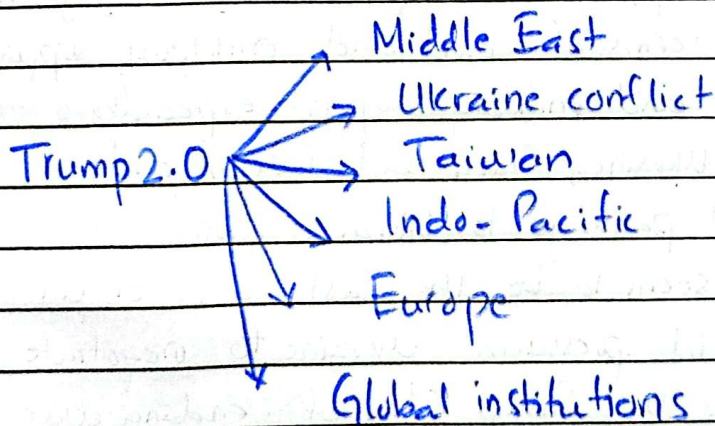 Middle East
Ukraine conflict
Trump 2.0
Taiwan
Indo-Pacific
Europe
Global institutions